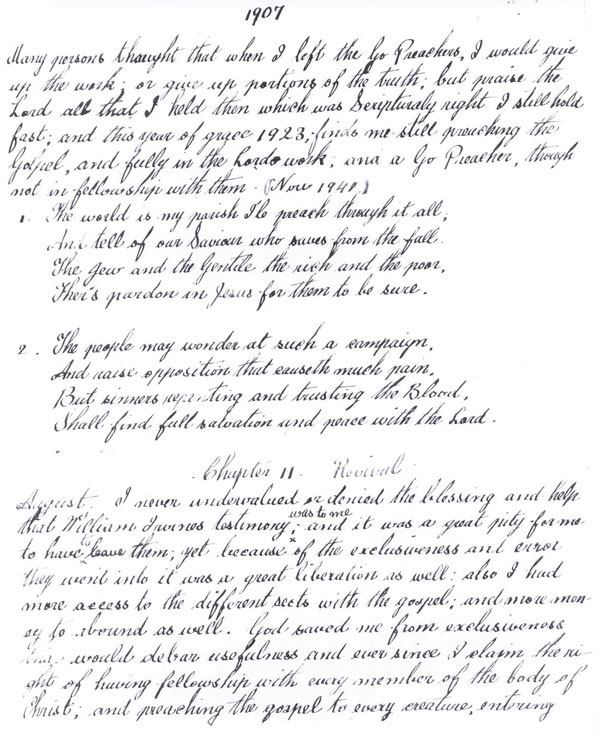 1907
Many persons thought that when I left the Go Preachers, I would give
up the work; or give up portions of the truth; but praise the
Lord all that I held then which was Scripturaly right I still hold
fast; and this year of grace 1923, finds me still preaching the
Gospel, and fully in the Lords work; and a Go Preacher, though
not in fellowship with them (Nov 1940)
1. The world is my parish I'le preach through it all;
And tell of our Saviour who saves from the fall.
The Jew and the Gentile the rich and the poor,
Ther's pardon in Jesus for them to be sure.
2. The people may wonder at such a campaign,
And raise opposition that causeth much pain,
But sinners repenting and trusting the Blood,
Shall find full salvation and peace with the Lord.
Chapter 11. Revival
August. I never undervalued or denied the blessing and help
that William Irvines testimony was to me; and it was a great pity for me
to have to leave them; yet because of the exclusiveness and error
they went into it was a great liberation as well: also I had
more access to the different sects with the gospel; and more mon-
ey to abound as well. God saved me from exclusiveness
would debar usefulness and ever since I claim the ri-
ghts of having fellowship with every member of the body of
Christ; and preaching the gospel to every creature, entering